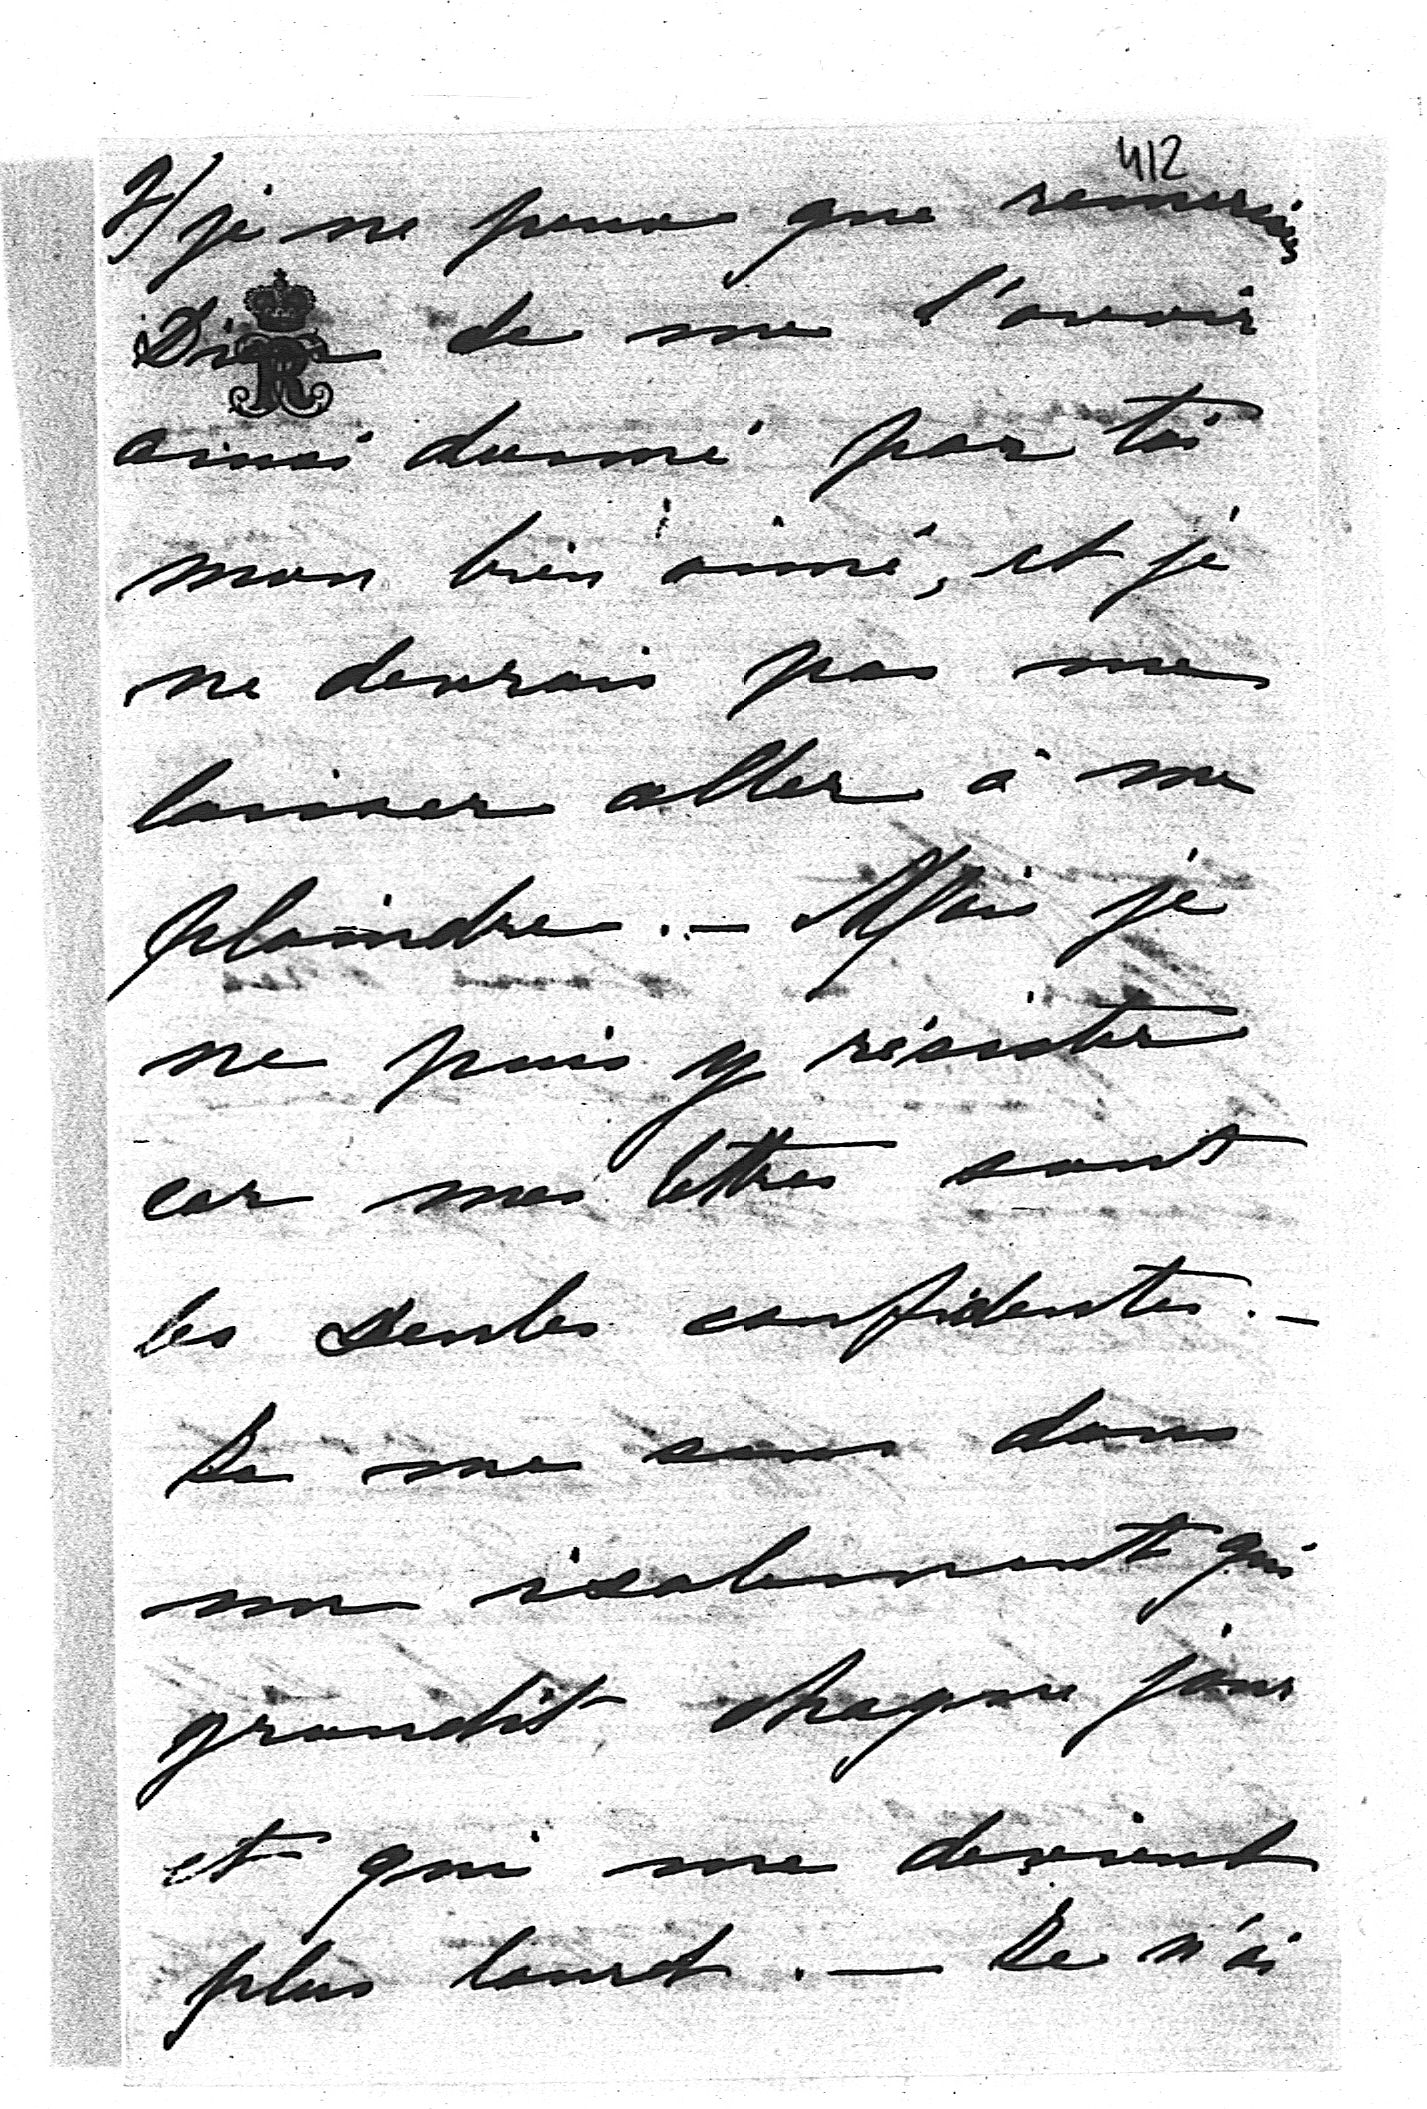 412
2/ je ne peux que remercier
Dieu de me l'avoir
ainsi donné par toi
mon bien aimé, et je
ne devrais pas me
laisser aller à me
plaindre. — Mais je
ne puis y résister
car mes lettres sont
les seules confidentes. —
Je me sens dans
un isolement qui
grandit chaque jour
et qui me devient
plus lourd. — Je n'ai